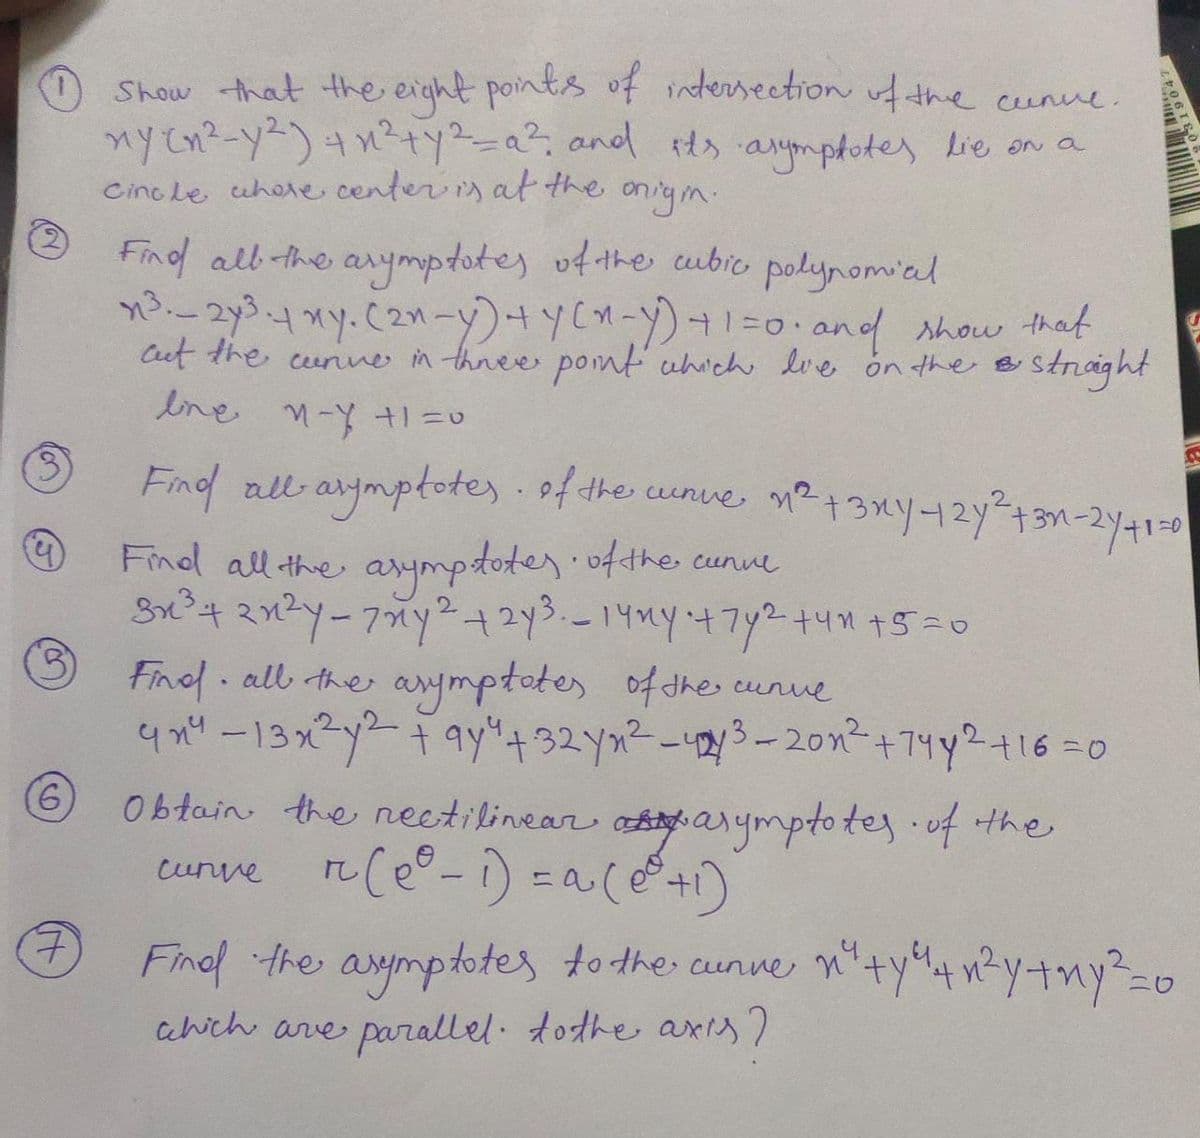 ① Show that the eight points of intersection of the curve.
xy(x²-y²)+x²+y²=a². and its asymptotes lie on a
circle whose center is at the origin.
② Find all the asymptotes of the cubic polynomial
x³-2y³+xy.(2x-y)+y(x-y)+1=0. and show that
cut the curve in three point which lie on the straight
line x-y+1=0
③ Find all asymptotes. of the curve x²+3xy+2y²+3x-2y+1=0
④ Find all the asymptotes of the curve
3x³+2x²y-7xy²+2y³-14xy+7y²+4x+5=0
⑤ Find. all the asymptotes of the curve
4x⁴-13x²y²+9y⁴+32yx²-42y³-20x²+74y²+16=0
⑥ Obtain the rectilinear asymptotes of the
curve r(e^θ-1)=a(e^θ+1)
⑦ Find the asymptotes to the curve x⁴+y⁴+x²y+xy²=0
which are parallel to the axis?